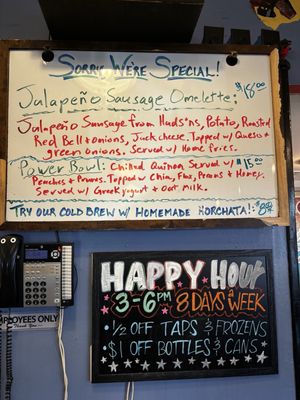 Sorry, We're Special!
Jalapeño Sausage Omelette: $18.00
Jalapeño Sausage from Hudson's, Potato, Roasted
Red Bell + onions, Jack cheese. Topped w/ Queso +
green onions. Served w/ Home fries.
Power Bowl: Chilled Quinoa Served w/ $15.00
Peaches + Prunes. Topped w/ Chia, Flax, Pecans + Honey.
Served w/ Greek yogurt + oat milk.
Try our Cold Brew w/ Homemade Horchata!:
EMPLOYEES ONLY
Thank You
HAPPY HOUR
3-6PM 8 DAYS A WEEK
• 1/2 OFF TAPS & FROZENS
• $1 OFF BOTTLES & CANS